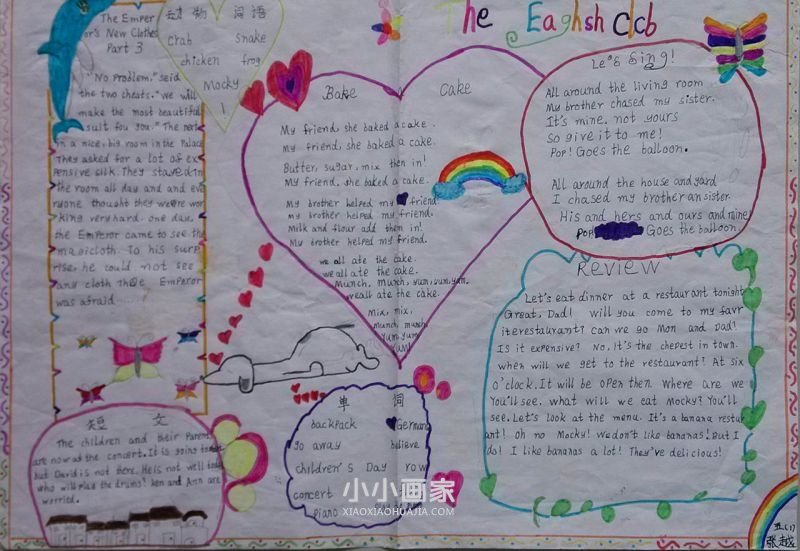 The Eaghsh clcb
The Emper
or's New Clothes
Part 3
"No problem," seid
the two cheats. "we will
make the most beautiful
suit fou you." The
in a nice, big room in the Palace
They asked for a lot of ex
Pensive silk. They stayed in
the room all day and and eve
ryone thought they were wor
king very hard. one day.
the Emperor came to see the
magicloth. To his surp
rise, he could not see
any cloth The Emperor
was afraid......
动物词语
crab snake
chicken frog
Mocky
Bake a Cake
My friend, she baked a cake.
My friend, she baked a cake.
Butter, sugar, mix then in!
My friend, she baked a cake.
My brother helped my friend
my brother helped my friend.
Milk and flour add then in!
My brother helped my friend.
we all ate the cake.
we all ate the cake.
Munch, munch, yum, yum, yum.
we all ate the cake.
Mix, mix,
munch, munch,
yum, yum
yum!
Let's Sing!
All around the living room
My brother chased my sister.
It's mine. not yours
So give it to me!
Pop! Goes the balloon.
All around the house and yard
I chased my brother an sister.
His and hers and ours and mine
Pop Goes the balloon.
Review
Let's eat dinner at a restaurant tonight
Great, Dad! will you come to my favr
iterestaurant? Can we go Mon and Dad!
Is it expensive? No. It's the chepest in town.
when will we get to the restaurant? At six
o'clock. It will be open then. Where are we
You'll see. what will we eat Mocky? You'll
see. Let's look at the menu. It's a banana restur
ant! oh no Mocky! We don't like bananas! But I
do! I like bananas a lot! They've delicious!
短文
The children and their Parents
are now at the concert. It is going to
but David is not here. He is not well today
who will play the drums? ken and Ann are
worried.
单词
backpack German
go away believe
children's Day row
concert
piano
小小画家
XIAOXIAOHUAJIA.COM
五(1)
张越